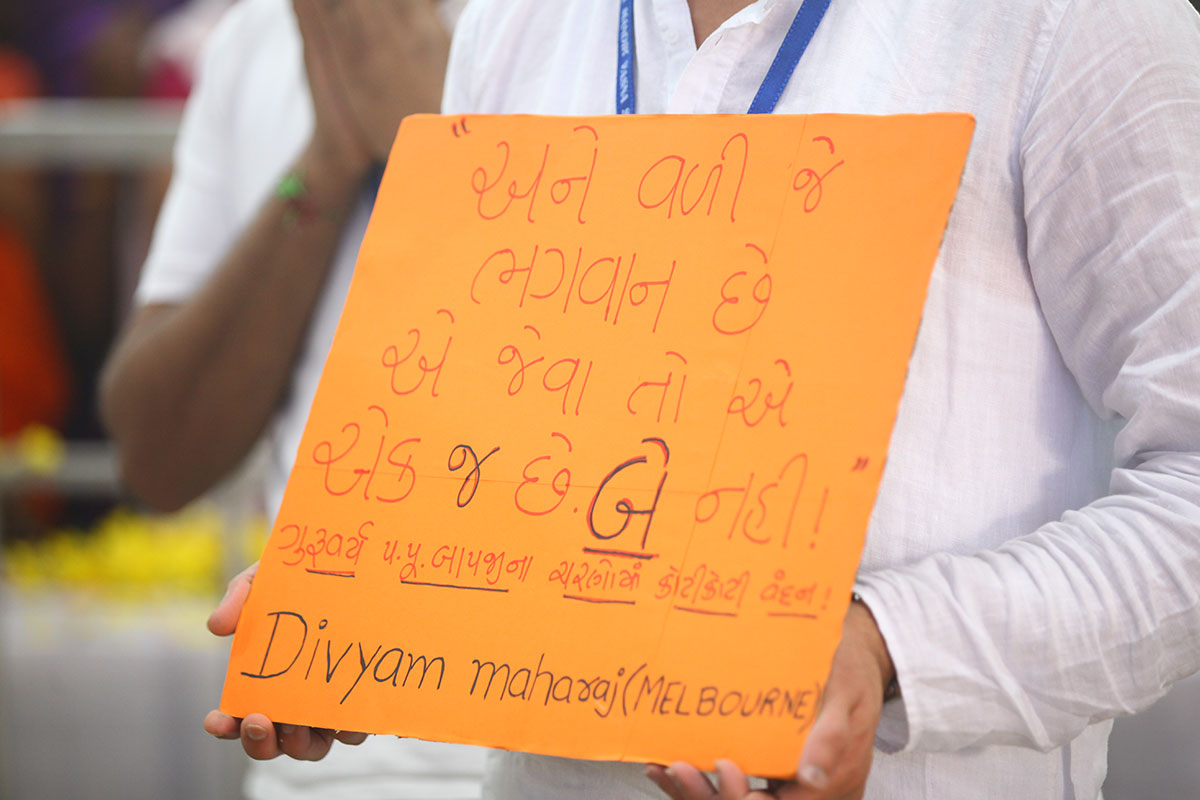 "અને વળી જે
ભગવાન છે
એ જેવા તો એ
એક જ છે. બે નહી!"
ગુરૂવર્ય પ.પૂ. બાપજીના ચરણોમાં કોટીકોટી વંદન!
Divyam maharaj (MELBOURNE)